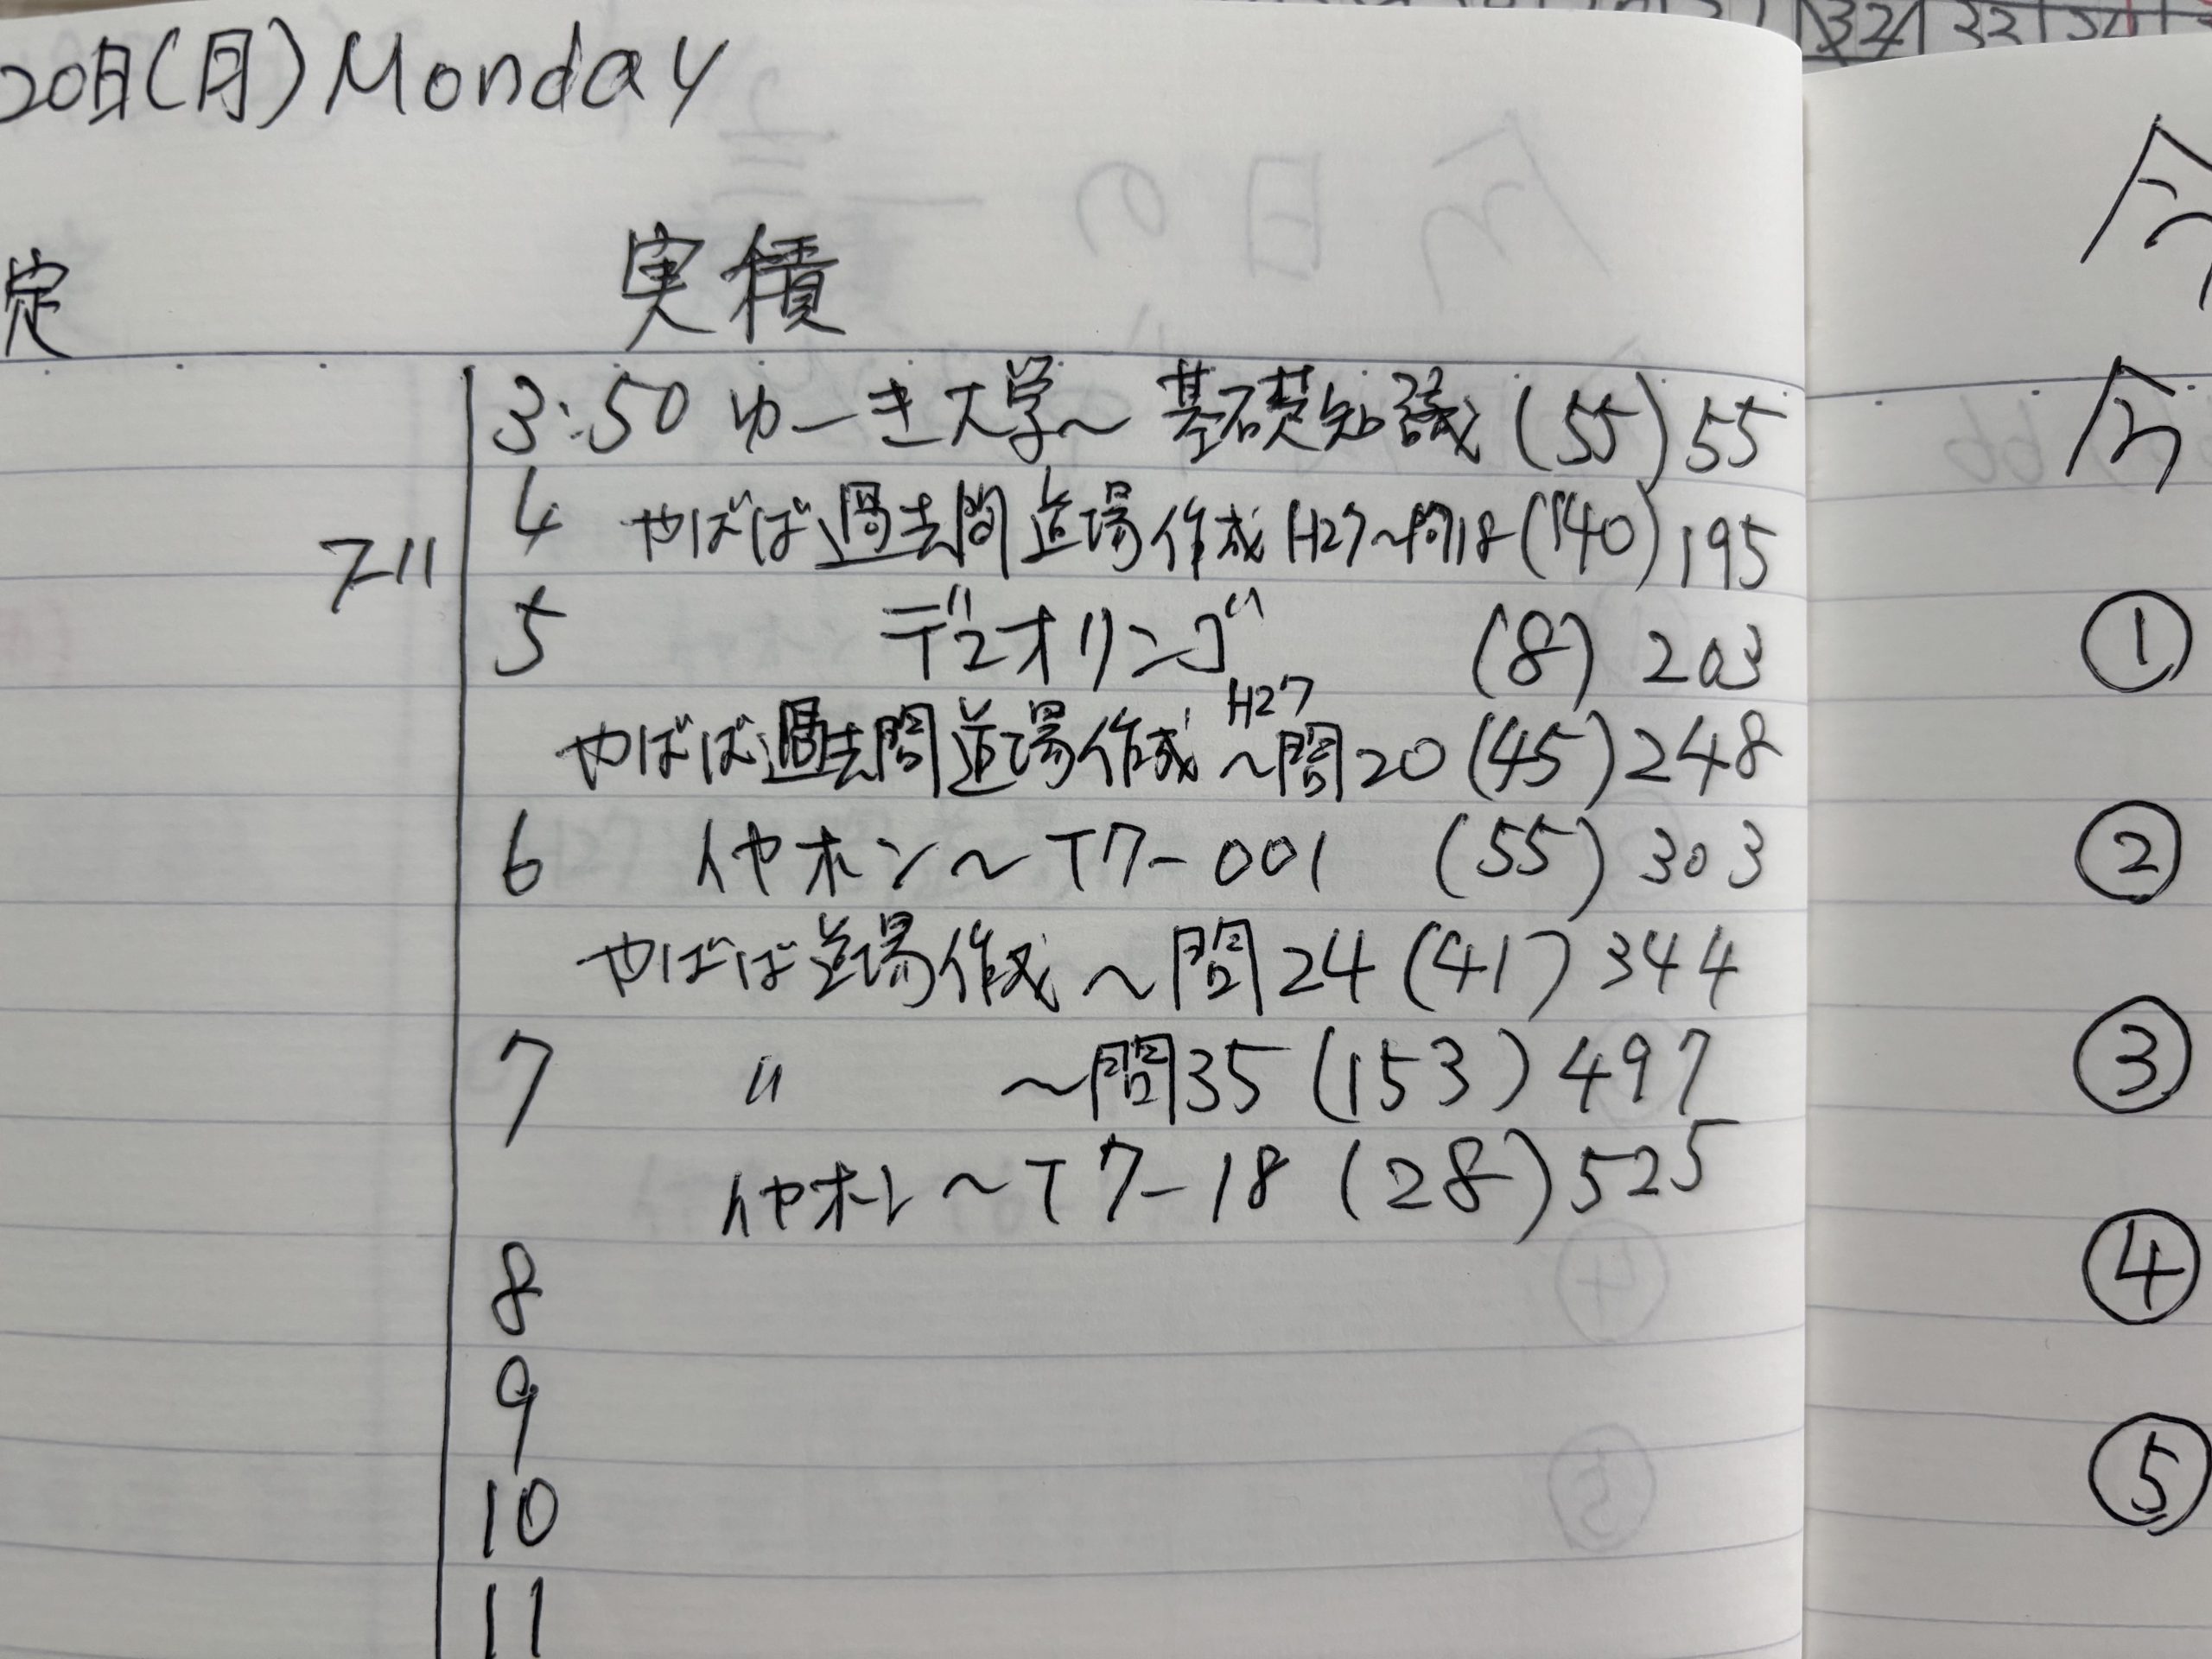 20日(月) Monday
定 実積
3:50 ゆーき大学～基礎知識 (55) 55
4 やばば過去問道場作成 H27～問18 (140) 195
711
5 デュオリンゴ (8) 203
やばば過去問道場作成 H27～問20 (45) 248
6 イヤホン～T7-001 (55) 303
やばば道場作成～問24 (41) 344
7 〃 ～問35 (153) 497
イヤホン～T7-18 (28) 525
8
9
10
11
今
今
①
②
③
④
⑤
32 33 34